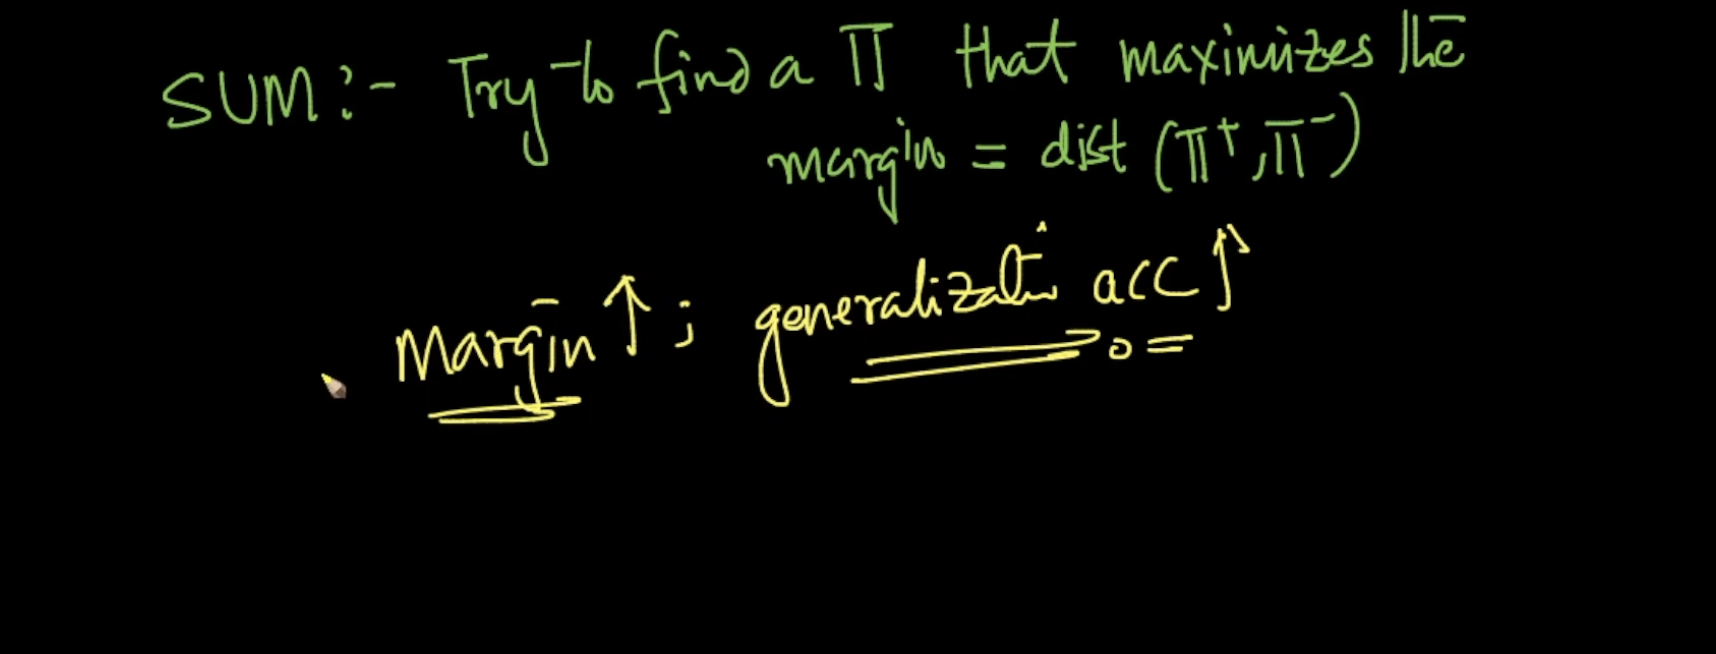 SVM:- Try to find a π that maximizes the
margin = dist (π⁺, π⁻)
Margin ↑ ; generalization acc ↑